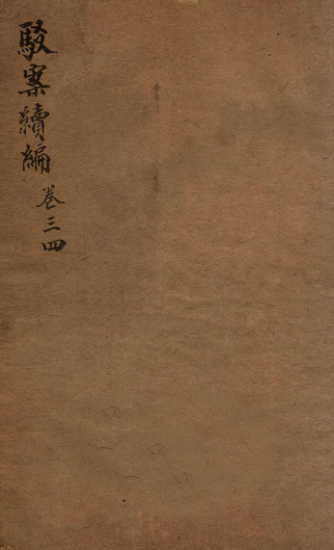 駁案續編 卷三四